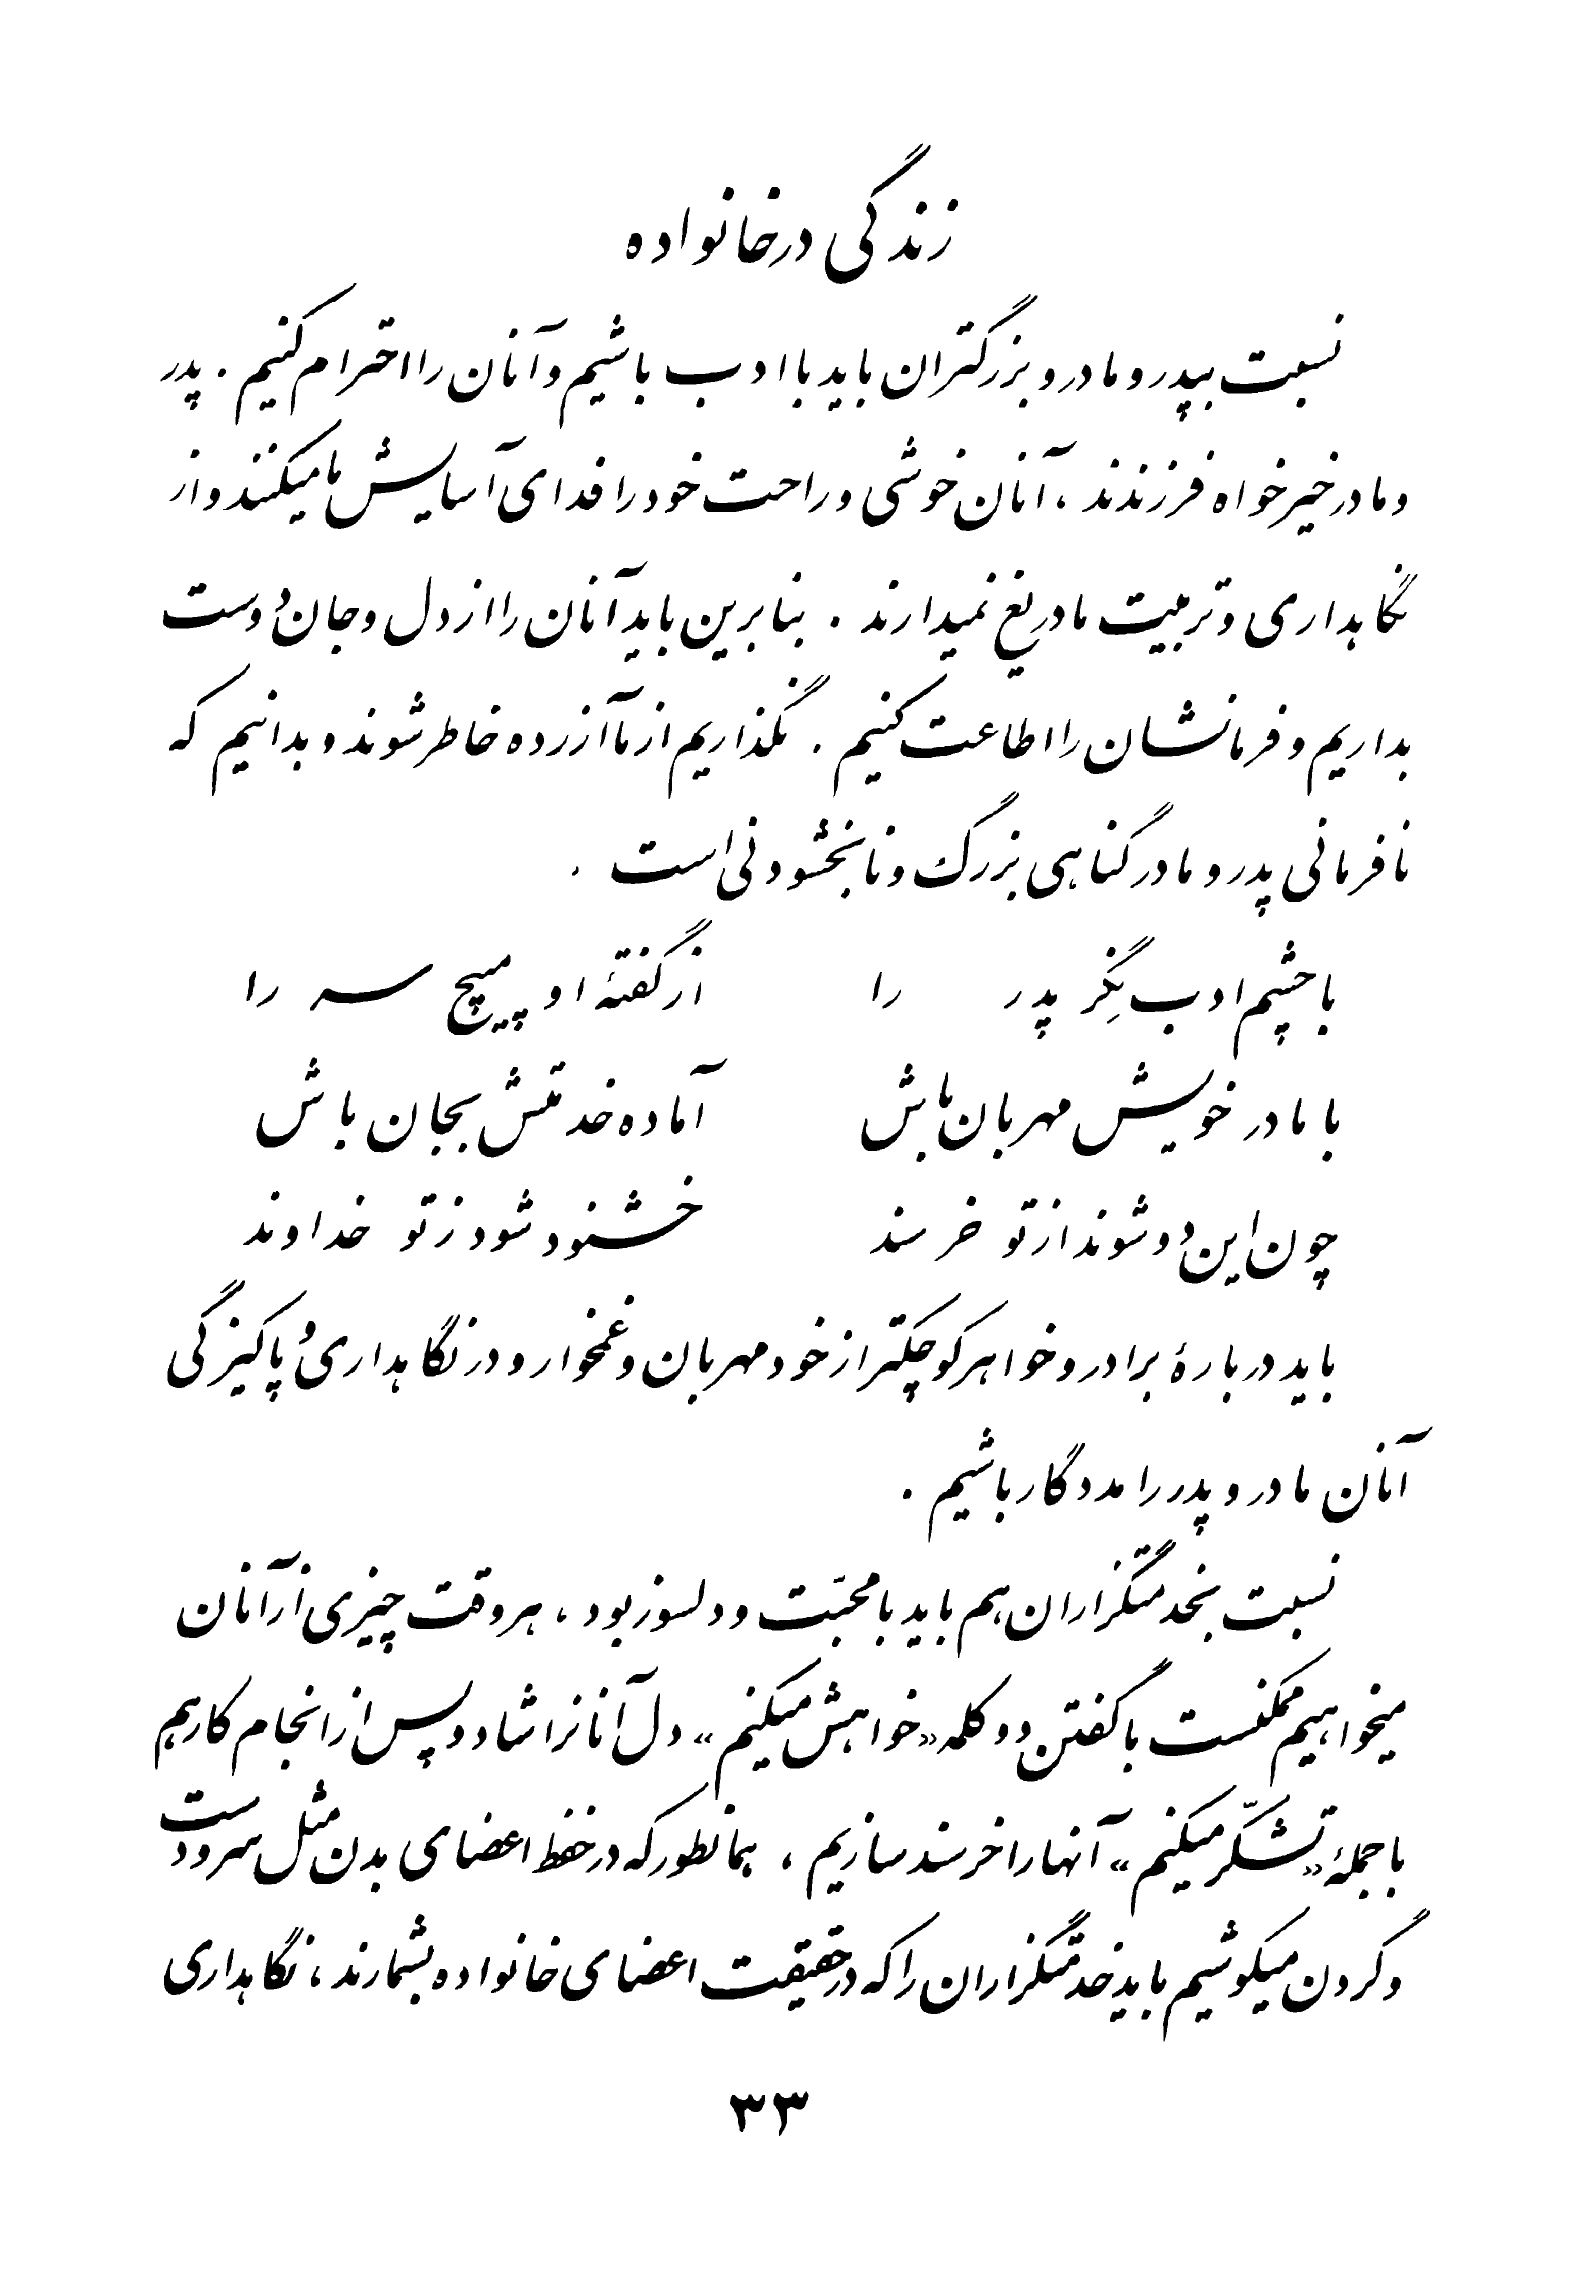 زندگی در خانواده
نسبت بپدر و مادر و بزرگتران باید با ادب باشیم و آنان را احترام کنیم . پدر
و مادر خیرخواه فرزندند ، آنان خوشی و راحت خود را فدای آسایش ما میکنند و از
نگاهداری و تربیت ما دریغ نمیدارند . بنابرین باید آنان را از دل و جان دوست
بداریم و فرمانشان را اطاعت کنیم . نگذاریم از ما آزرده خاطر شوند و بدانیم که
نافرمانی پدر و مادر گناهی بزرگ و نابخشودنی است .
با چشم ادب نِگر پدر را از گفتهٔ او مپیچ سر را
با مادر خویش مهربان باش آماده خدمتش بجان باش
چون این دو شوند از تو خرسند خشنود شود ز تو خداوند
باید دربارهٔ برادر و خواهر کوچکتر از خود مهربان و غمخوار و در نگاهداری و پاکیزگی
آنان مادر و پدر را مددگار باشیم .
نسبت بخدمتگزاران هم باید با محبّت و دلسوز بود ، هر وقت چیزی از آنان
میخواهیم ممکنست با گفتن دو کلمه «خواهش میکنم» دل آنانرا شاد و پس از انجام کار هم
با جملهٔ «تشکّر میکنم» آنها را خرسند سازیم ، همانطور که در حفظ اعضای بدن مثل سر و دست
و گردن میکوشیم باید خدمتگزاران را که در حقیقت اعضای خانواده بشمارند ، نگاهداری
۳۳